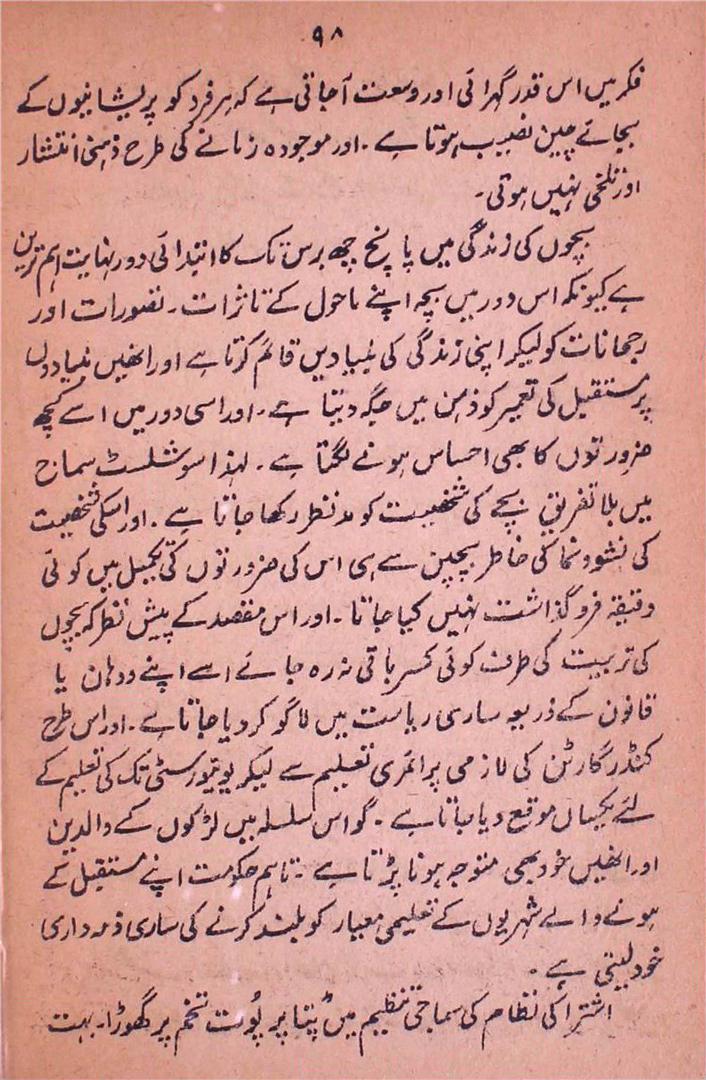 ۹۸
فکر میں اس قدر گہرائی اور وسعت آ جاتی ہے کہ ہر فرد کو پریشانیوں کے
بجائے چین نصیب ہوتا ہے۔ اور موجودہ زمانے کی طرح ذہنی انتشار
اور تلخی نہیں ہوتی۔
بچوں کی زندگی میں پانچ چھ برس تک کا ابتدائی دور نہایت اہم ترین
ہے کیونکہ اس دور میں بچہ اپنے ماحول کے تاثرات۔ تصورات اور
رجحانات کو لیکر اپنی زندگی کی بنیادیں قائم کرتا ہے اور انھیں بنیادوں
پر مستقبل کی تعمیر کو ذہن میں جگہ دیتا ہے۔ اور اسی دور میں اسے کچھ
ضرورتوں کا بھی احساس ہونے لگتا ہے۔ لہذا سوشلسٹ سماج
میں بلا تفریق بچے کی شخصیت کو مدنظر رکھا جاتا ہے۔ اور اسکی شخصیت
کی نشوونما کی خاطر بچپن سے ہی اس کی ضرورتوں کی تکمیل میں کوئی
دقیقہ فروگذاشت نہیں کیا جاتا۔ اور اس مقصد کے پیش نظر کہ بچوں
کی تربیت کی طرف کوئی کسر باقی نہ رہ جائے اسے اپنے ودھان یا
قانون کے ذریعہ ساری ریاست میں لاگو کر دیا جاتا ہے۔ اور اس طرح
کنڈر گارٹن کی لازمی پرائمری تعلیم سے لیکر یونیورسٹی تک کی تعلیم کے
لئے یکساں موقع دیا جاتا ہے۔ گو اس سلسلہ میں لڑکوں کے والدین
اور انھیں خود بھی متوجہ ہونا پڑتا ہے۔ تاہم حکومت اپنے مستقبل کے
ہونے والے شہریوں کے تعلیمی معیار کو بلند کرنے کی ساری ذمہ داری
خود لیتی ہے۔
اشتراکی نظام کی سماجی تنظیم میں پتا پر پوت تخم پر گھوڑا۔ بہت